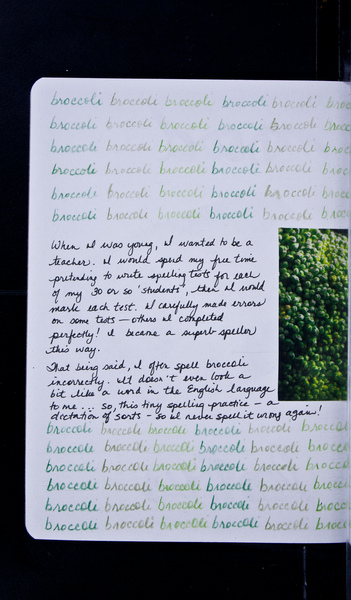 broccoli broccoli broccoli broccoli broccoli brocc
broccoli broccoli broccoli broccoli broccoli brocc
broccoli broccoli broccoli broccoli broccoli brocc
broccoli broccoli broccoli broccoli broccoli brocc
broccoli broccoli broccoli broccoli broccoli brocc
broccoli broccoli broccoli broccoli broccoli brocc
When I was young, I wanted to be a
teacher. I would spend my free time
pretending to write spelling tests for each
of my 30 or so 'students', then I would
mark each test. I carefully made errors
on some tests — others I completed
perfectly! I became a superb speller
this way.
That being said, I often spell broccoli
incorrectly. It doesn't even look a
bit like a word in the English language
to me... so, this tiny spelling practice - a
dictation of sorts - so I never spell it wrong again!
broccoli broccoli broccoli broccoli broccoli broccoli
broccoli broccoli broccoli broccoli broccoli brocco
broccoli broccoli broccoli broccoli broccoli brocco
broccoli broccoli broccoli broccoli broccoli brocco
broccoli broccoli broccoli broccoli broccoli brocc
broccoli broccoli broccoli broccoli broccoli brocco